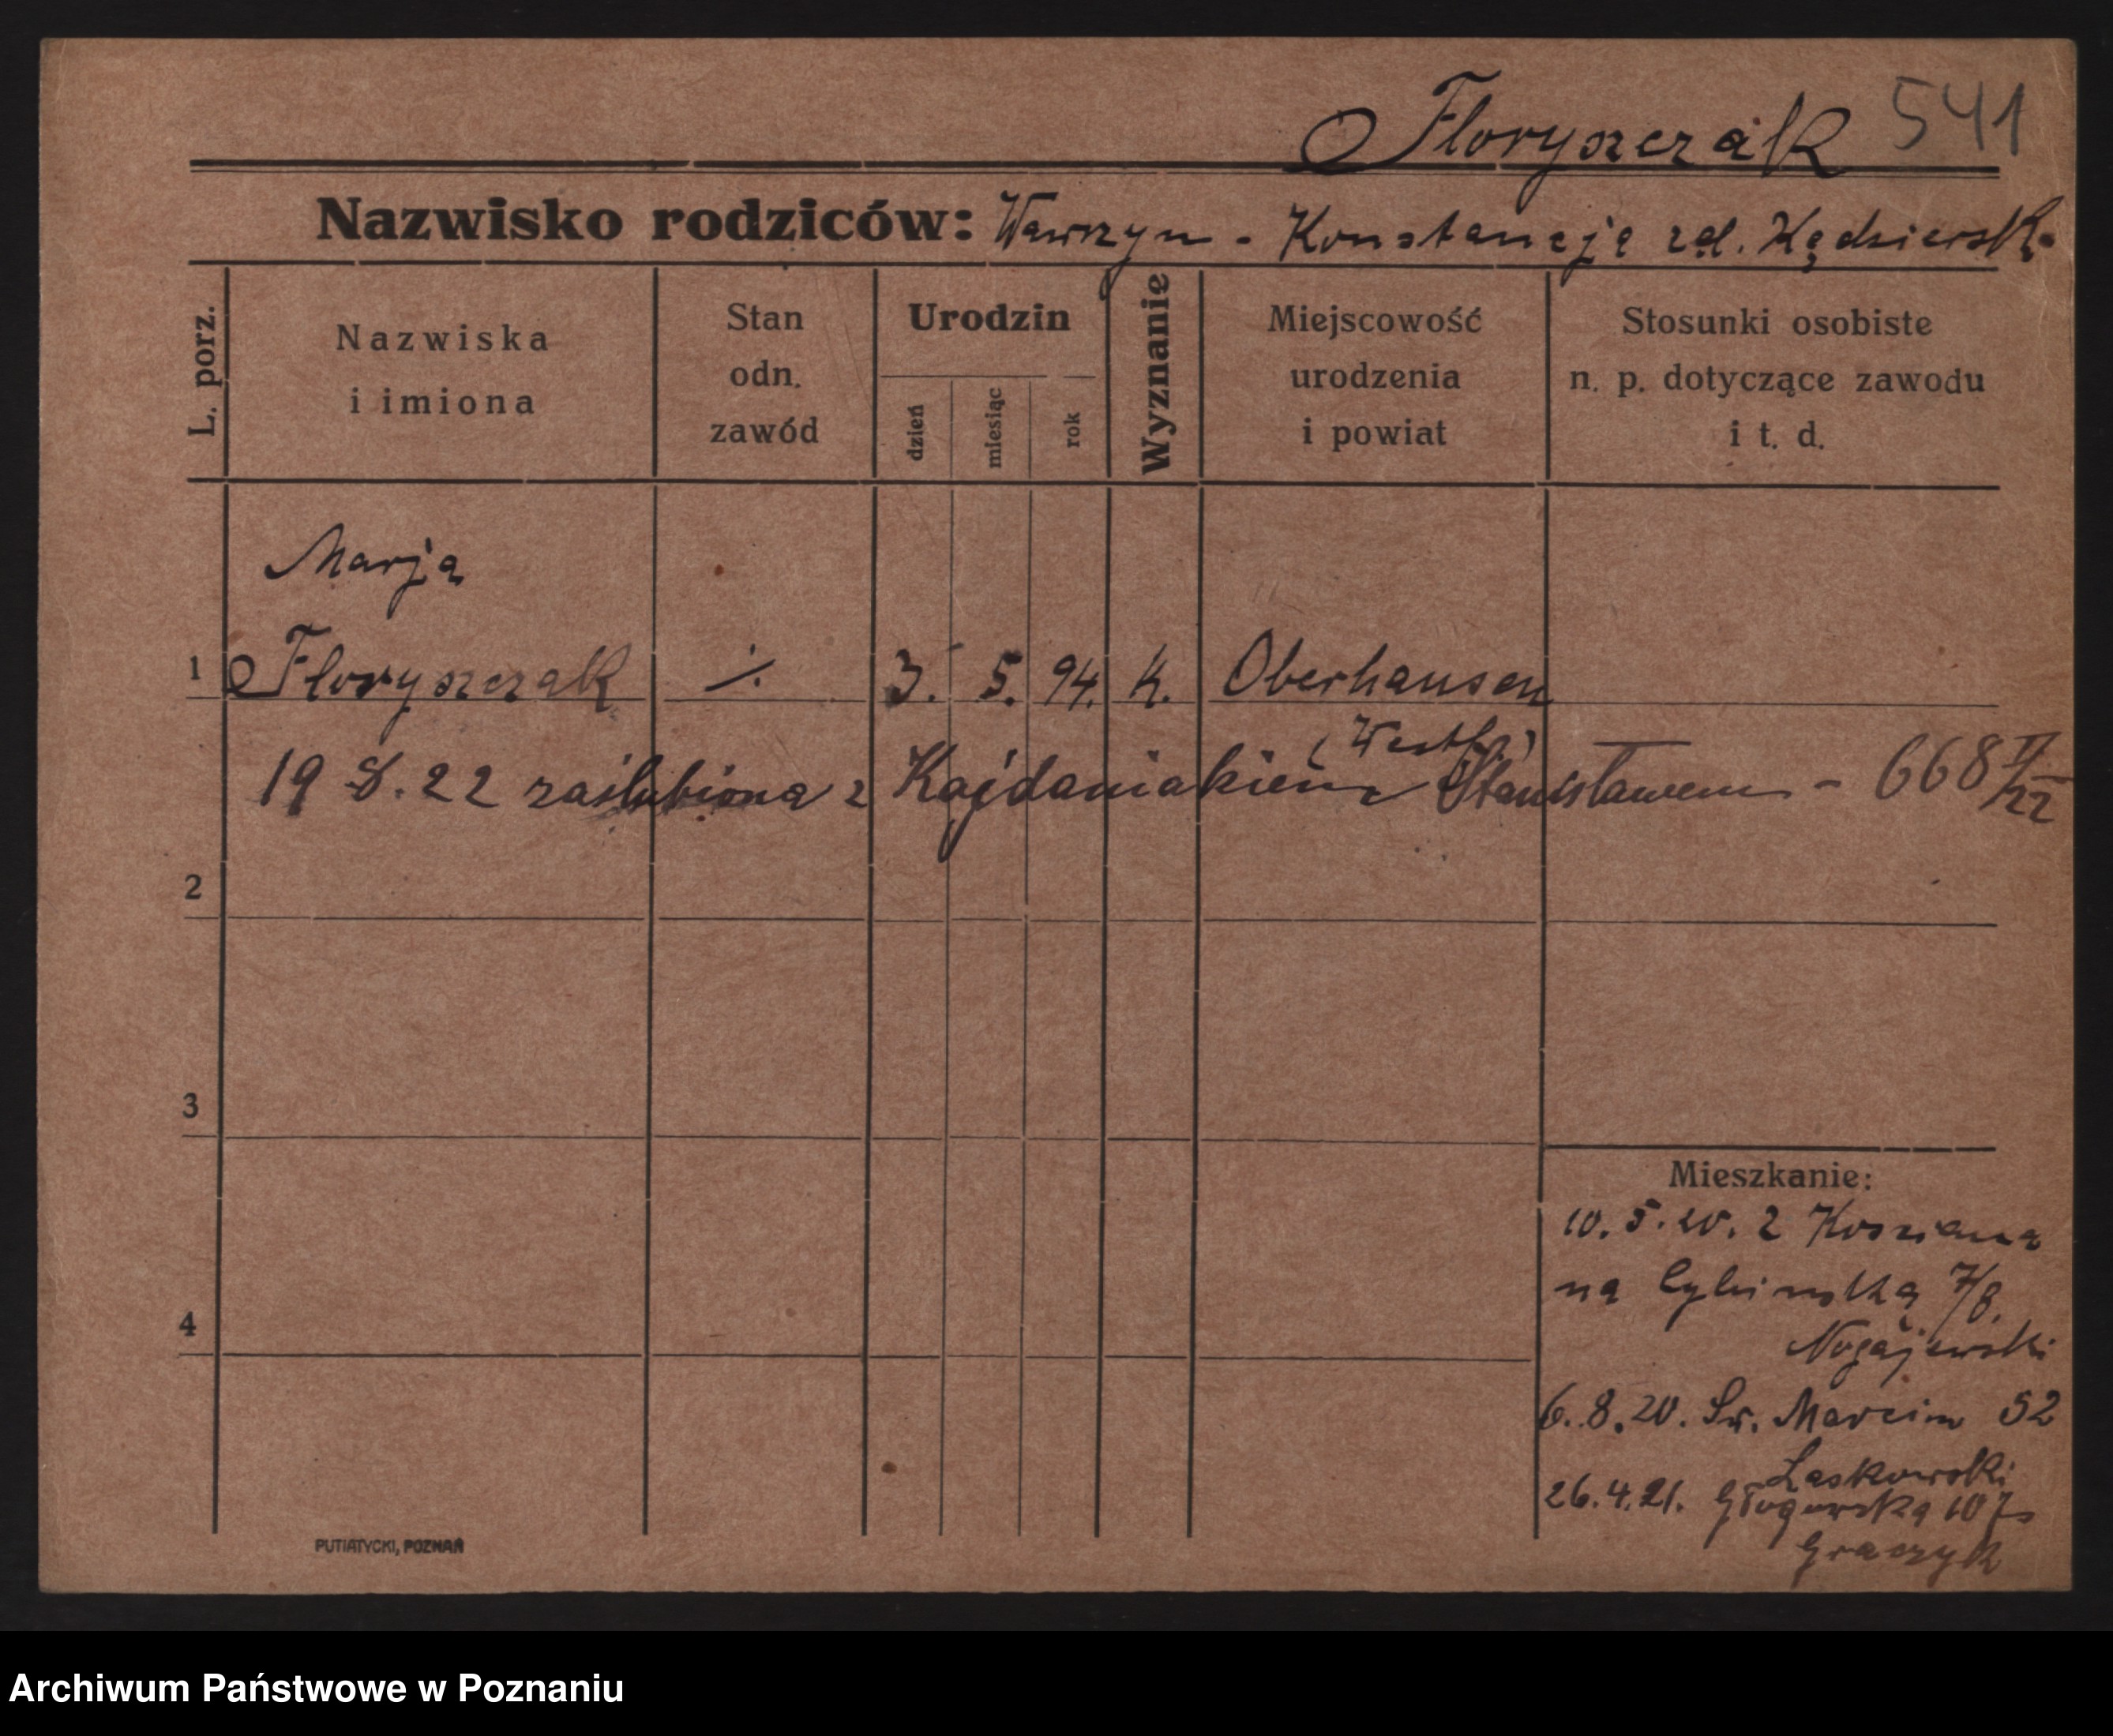 Floryszczak 541
Nazwisko rodziców: Wawrzyn - Konstancja zd. Kędziersk.
L. porz.
Nazwiska
i imiona
Stan
odn.
zawód
Urodzin
dzień
miesiąc
rok
Wyznanie
Miejscowość
urodzenia
i powiat
Stosunki osobiste
n. p. dotyczące zawodu
i t. d.
Marja
1 Floryszczak ./. 3. 5. 94. k. Oberhausen
(Westf.)
19 8. 22 zaślubiona z Kajdaniakiem Stanisławem - 668 II/22
2
3
4
Mieszkanie:
10. 5. 20. z Kościana
na Cybińską 7/8,
Nogajewski
6. 8. 20. Św. Marcin 52
Laskowski
26. 4. 21. Głogowska 107
Graczyk
PUTIATYCKI, POZNAŃ
Archiwum Państwowe w Poznaniu